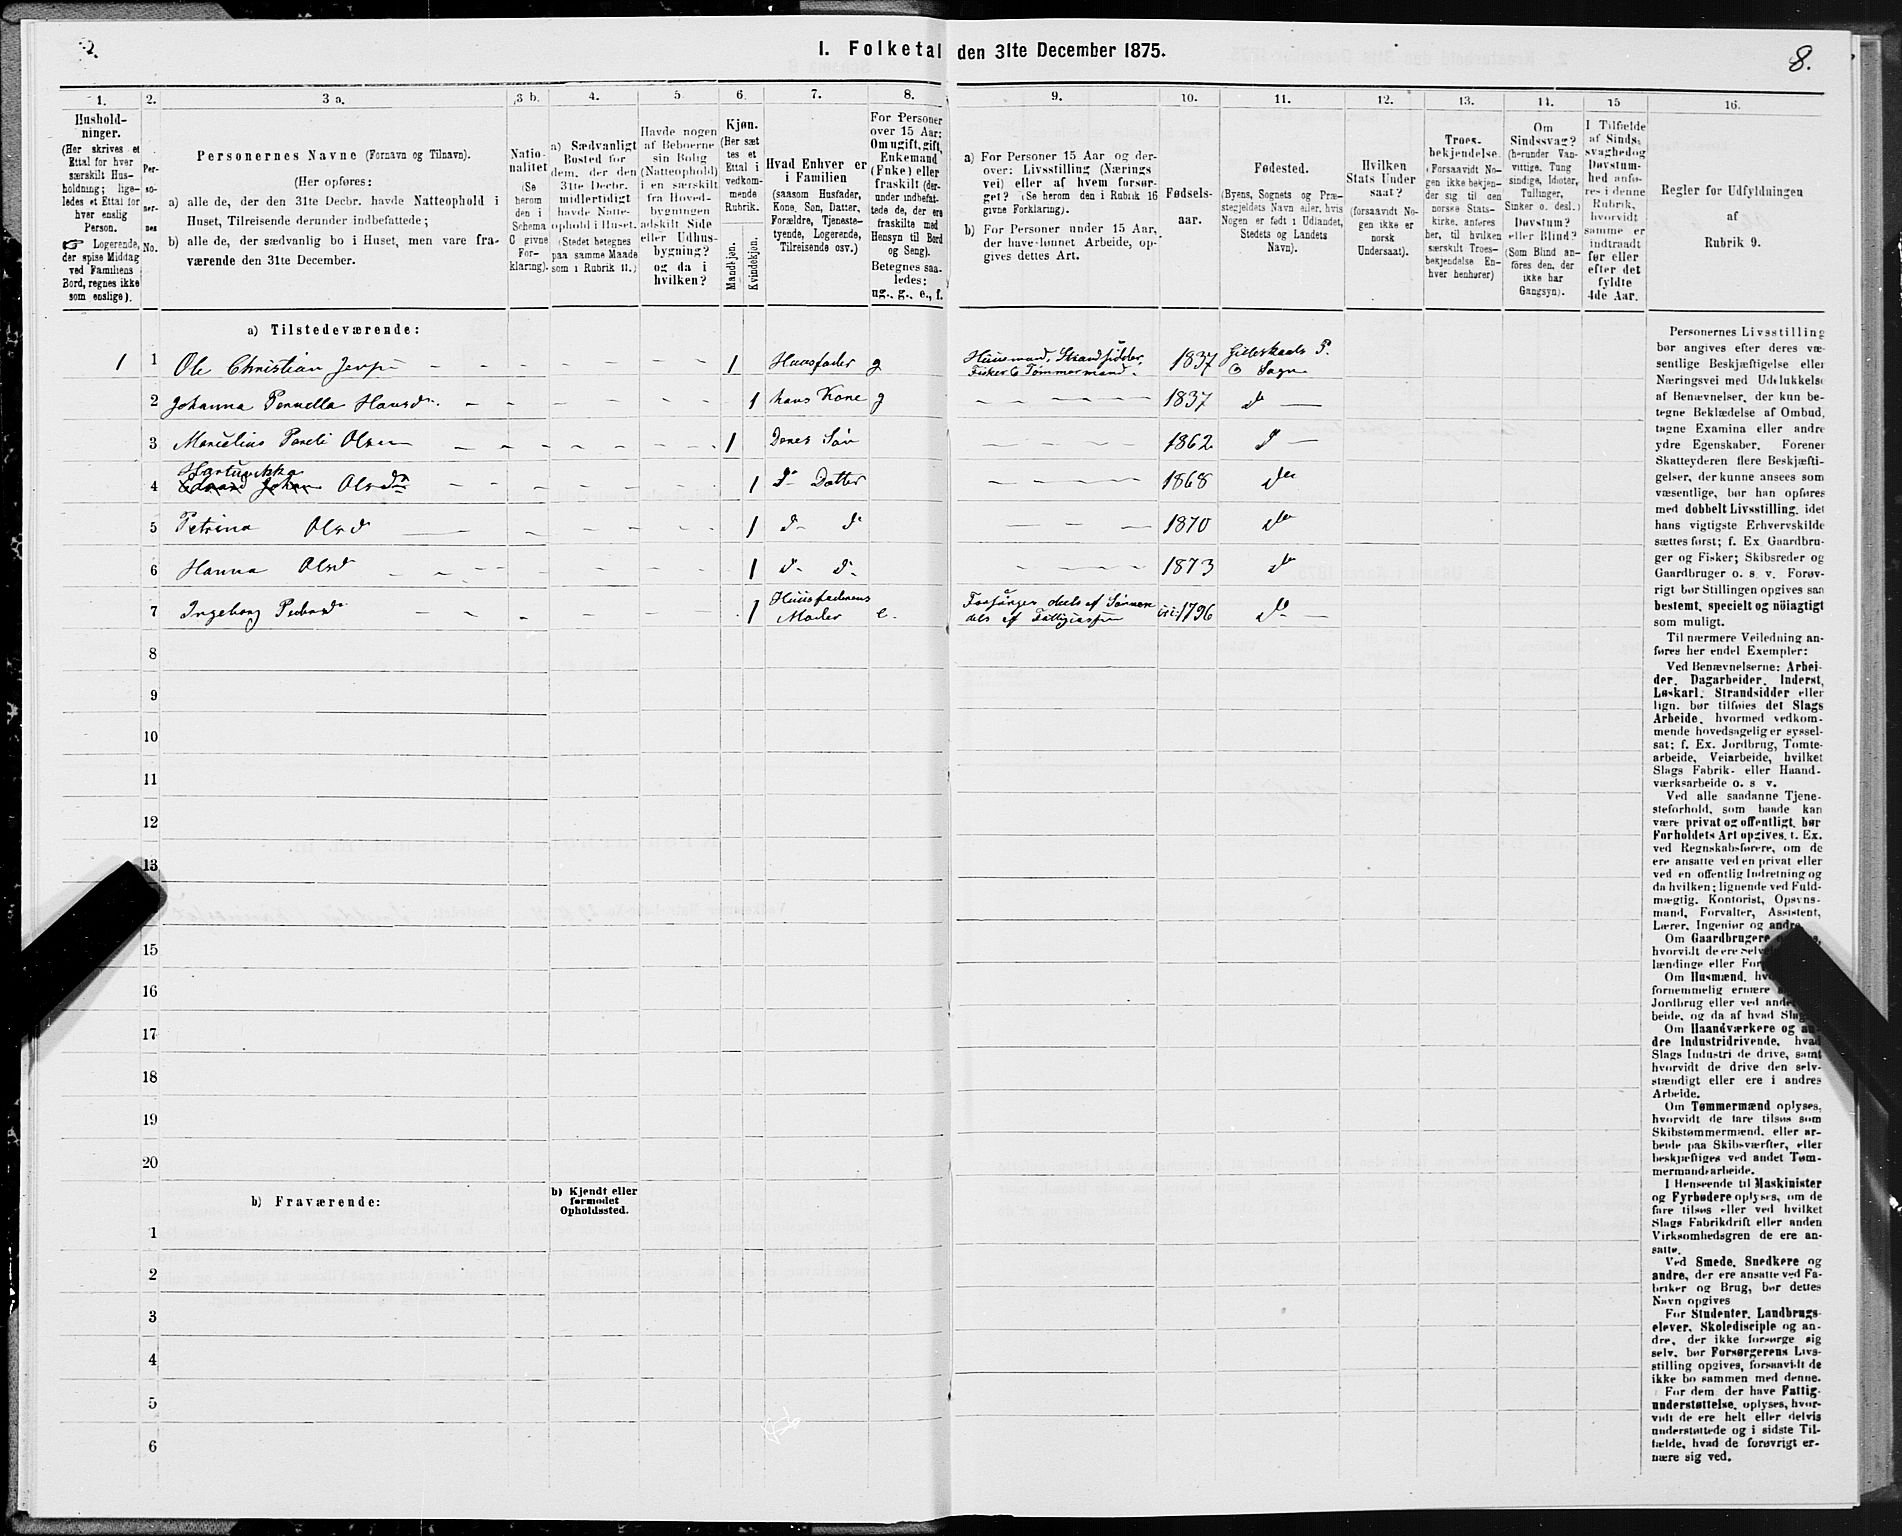 2.
I. Folketal den 31te December 1875.
8.
1. 2. 3 a. 3 b. 4. 5. 6. 7. 8. 9. 10. 11. 12. 13. 14. 15 16.
Hushold-
ninger.
(Her skrives et
Ettal for hver
særskilt Hus-
holdning; lige-
ledes et Ettal for
hver enslig
Person.
☞ Logerende,
der spise Middag
ved Familiens
Bord, regnes ikke
som enslige).
Per-
so-
ner-
nes
No.
Personernes Navne (Fornavn og Tilnavn).
(Her opføres:
a) alle de, der den 31te Decbr. havde Natteophold i
Huset, Tilreisende derunder indbefattede;
b) alle de, der sædvanlig bo i Huset, men vare fra-
værende den 31te December.
Natio-
nalitet
(Se
herom
den i
Schema
C givne
For-
klaring).
a) Sædvanligt
Bosted for
dem, der den
31te Decbr.
midlertidigt
havde Natte-
ophold i Huset.
(Stedet betegnes
paa samme Maade
som i Rubrik 11.)
Havde nogen
af Beboerne
sin Bolig
(Natteophold)
i en særskilt
fra Hoved-
bygningen
adskilt Side
eller Udhus-
bygning?
og da i
hvilken?
Kjøn.
(Her sæt-
tes et
Ettal i
vedkom-
mende
Rubrik.
Mandkjøn.
Kvindekjøn.
Hvad Enhver er
i Familien
(saasom Husfader,
Kone, Søn, Datter,
Forældre, Tjeneste-
tyende, Logerende,
Tilreisende osv.)
For Personer
over 15 Aar:
Om ugift, gift,
Enkemand
(Enke) eller
fraskilt (der-
under indbefat-
tede de, der ere
fraskilte med
Hensyn til Bord
og Seng).
Betegnes saa-
ledes:
ug., g., e., f.
a) For Personer 15 Aar og der-
over: Livsstilling (Nærings-
vei) eller af hvem forsør-
get? (Se herom den i Rubrik 16
givne Forklaring).
b) For Personer under 15 Aar,
der have lønnet Arbeide, op-
gives dettes Art.
Fødsels-
aar.
Fødested.
(Byens, Sognets og Præ-
stegjeldets Navn eller, hvis
Nogen er født i Udlandet,
Stedets og Landets
Navn).
Hvilken
Stats Under-
saat?
(forsaavidt No-
gen ikke er
norsk
Undersaat).
Troes-
bekjendelse.
(Forsaavidt No-
gen ikke bekjen-
der sig til den
norske Stats-
kirke, anføres
her, til hvilken
særskilt Troes-
bekjendelse En-
hver henhører)
Om
Sindssvag?
(herunder Van-
vittige, Tung-
sindige, Idioter,
Tullinger,
Sinker o. desl.)
Døvstum?
eller Blind?
(Som Blind an-
føres den, der
ikke har
Gangsyn).
I Tilfælde
af Sinds-
svaghed og
Døvstum-
hed anfø-
res i denne
Rubrik,
hvorvidt
samme er
indtraadt
før eller
efter det
fyldte
4de Aar.
Regler for Udfyldningen
af
Rubrik 9.
a) Tilstedeværende:
1 1 Ole Christian 1 Huusfader g Huusmand, Strandsidder, Fisker & Tømmermand. 1837 Gildeskaals P. & Sogn
2 Johanna Pernella Hansd. 1 hans Kone g 1837 do
3 Marselius Olsen 1 Deres Søn 1862 do
4 Hartvikka Edvard Johan Olsdr 1 do Datter 1868 do
5 Petrina Olsd 1 do do 1870 do
6 Hanna Olsd 1 do do 1873 do
7 Ingeborg Pedersd 1 Huusfaderens Moder e. deels af Sønnen dels af 1796 do
8
9
10
11
12
13
15
16
17
18
19
20
b) Fraværende:
b) Kjendt eller
formodet
Opholdssted.
1
2
3
4
5
6
Personernes Livsstilling
bør angives efter deres væ-
sentlige Beskjæftigelse eller
Næringsvei med Udelukkelse
af Benævnelser, der kun be-
tegne Beklædelse af Ombud,
tagne Examina eller andre
ydre Egenskaber. Forener
Skatteyderen flere Beskjæfti-
gelser, der kunne ansees som
væsentlige, bør han opføres
med dobbelt Livsstilling, idet
hans vigtigste Erhvervskilde
sættes først; f. Ex. Gaardbru-
ger og Fisker; Skibsreder og
Gaardbruger o. s. v. Forøv-
rigt bør Stillingen opgives saa
bestemt, specielt og nöiagtigt
som muligt.
Til nærmere Veiledning an-
føres her endel Exempler:
Ved Benævnelserne: Arbei-
der, Dagarbeider, Inderst,
Løskarl, Strandsidder eller
lign. bør tilføies det Slags
Arbeide, hvormed vedkom-
mende hovedsagelig er syssel-
sat; f. Ex. Jordbrug, Tomte-
arbeide, Veiarbeide, hvilket
Slags Fabrik- eller Haand-
værksarbeide o. s. v.
Ved alle saadanne Tjene-
steforhold, som baade kan
være privat og offentligt, bør
Forholdets Art opgives, t. Ex.
ved Regnskabsførere, om de
ere ansatte ved en privat eller
ved en offentlig Indretning og
da hvilken; lignende ved Fuld-
mægtig, Kontorist, Opsyns-
mand, Forvalter, Assistent,
Lærer, Ingeniør og andre.
Om Gaardbrugere
hvorvidt de ere
lændinge eller
Om Husmænd,
fornemmelig ernære
Jordbrug eller ved
beide, og da af hvad
Om Haandværkere og an-
dre Industridrivende, hvad
Slags Industri de drive, samt
hvorvidt de drive den selv-
stændigt eller ere i andres
Arbeide.
Om Tømmermænd oplyses,
hvorvidt de fare tilsøs som
Skibstømmermænd, eller ar-
beide paa Skibsværfter, eller
beskjæftiges ved andet Tøm-
mermandsarbeide.
I Henseende til Maskinister
og Fyrbødere oplyses, om de
fare tilsøs eller ved hvilket
Slags Fabrikdrift eller anden
Virksomhedsgren de ere an-
satte.
Ved Smede, Snedkere og
andre, der ere ansatte ved Fa-
briker og Brug, bør dettes
Navn opgives
For Studenter, Landbrugs-
elever, Skoledisciple og an-
dre, der ikke forsørge sig
selv, bør Forsørgerens Livs-
stilling opgives, forsaavidt de
ikke bo sammen med denne.
For dem, der have Fattig-
understøttelse, oplyses, hvor-
vidt de ere helt eller delvis
understøttede og i sidste Til-
fælde, hvad de forøvrigt er-
nære sig ved.